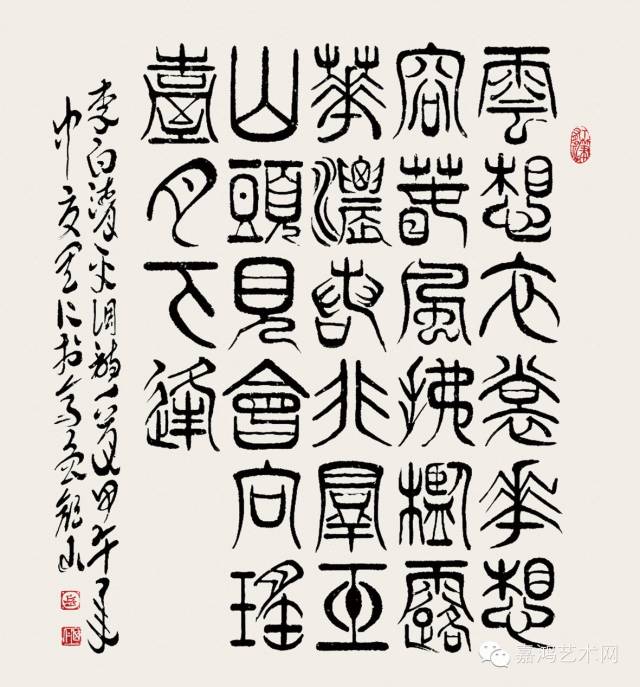 雲想衣裳花想
容春風拂檻露
華濃若非羣玉
山頭見會向瑤
臺月下逢
李白清平調詩一首甲午年
中夏
嘉鸿艺术网